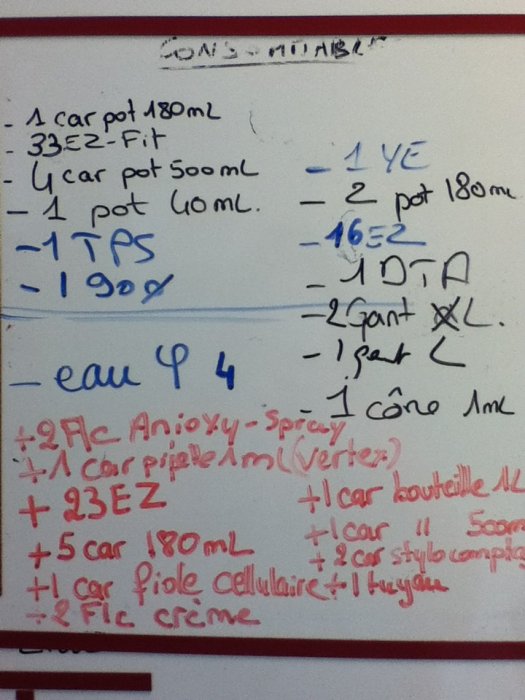 CONSOMMABLE
- 1 car pot 180mL
- 33EZ-Fit
- 4 car pot 500mL
- 1 pot 40mL.
- 1 TPS
- 1 90Ø
- eau φ 4
- 1 YE
- 2 pot 180mL
- 16EZ
- 1 DTA
- 2 Gant XL.
- 1 gant L
- 1 cône 1mL
+ 2 Flc Anioxy-Spray
+ 1 car pipette 1ml (vertex)
+ 23EZ
+ 5 car 180mL
+ 1 car fiole cellulaire
+ 2 Flc crème
+ 1 car bouteille 1L
+ 1 car " 500m
+ 2 car stylo compta
+ 1 tuyau